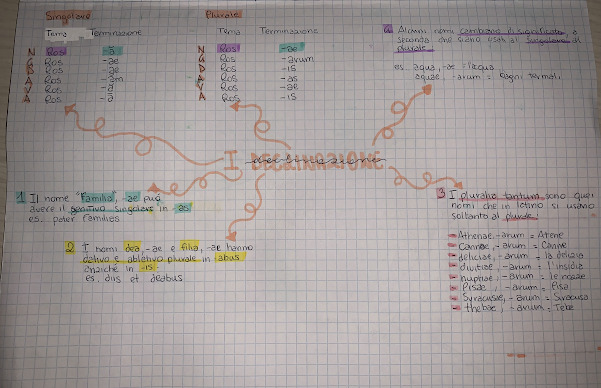 Singolare
Tema Terminazione
N Ros -ă
G Ros -ae
D Ros -ae
A Ros -am
V Ros -ă
A Ros -ā
Plurale
Tema Terminazione
N Ros -ae
G Ros -arum
D Ros -is
A Ros -as
V Ros -ae
A Ros -is
Alcuni nomi cambiano di significato a
seconda che siano usati al singolare o al
plurale.
es. aqua, -ae = l'acqua
aquae, -arum = bagni termali
I DECLINAZIONE
1 Il nome "familia", -ae può
avere il genitivo singolare in -as
es. pater familias
2 I nomi dea, -ae e filia, -ae hanno
dativo e ablativo plurale in abus
anzichè in -is
es. diis et deabus
3 I pluralia tantum sono quei
nomi che in latino si usano
soltanto al plurale:
- Athenae, -arum = Atene
- Cannae, -arum = Canne
- deliciae, -arum = la delizia
- -arum = l'insidia
- nuptiae, -arum = le nozze
- Pisae, -arum = Pisa
- Syracusae, -arum = Siracusa
- thebae, -arum = Tebe